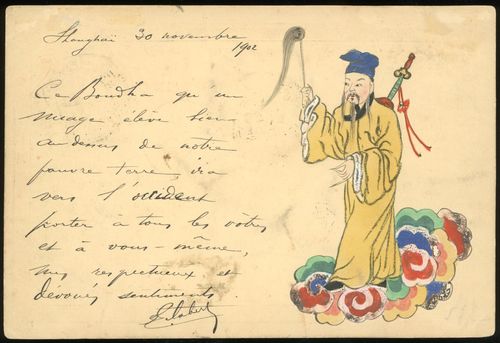 Shanghaï 30 novembre
1902
Ce Boudha qu'un
nuage élève bien
au dessus de notre
pauvre terre, ira
vers l'occident
porter à tous les vôtres
et à vous-même,
mes respectueux et
dévoués sentiments.